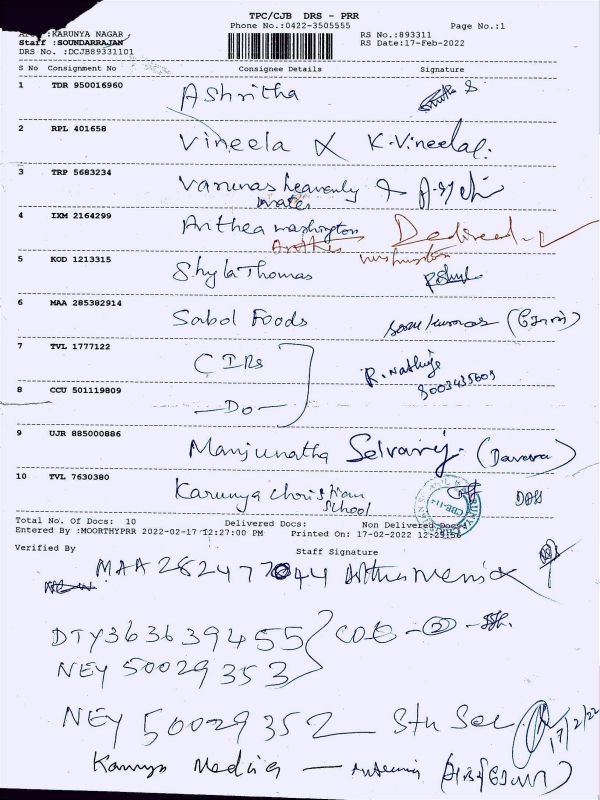 TPC/CJB DRS - PRR
Phone No.:0422-3505555 Page No.:1
:KARUNYA NAGAR RS No.:893311
Staff :SOUNDARRAJAN RS Date:17-Feb-2022
DRS No. :DCJB89331101
S No Consignment No Consignee Details Signature
1 TDR 950016960 Ashritha
2 RPL 401658 Vineela K.Vineela
3 TRP 5683234 Varunas heavenly
water
4 IXM 2164299 Anthea washington
Anthea washington
5 KOD 1213315 Shyla Thomas
6 MAA 285382914 Sabol Foods
7 TVL 1777122 CIRs R. Nathiya
8 CCU 501119809 —Do— 8003435609
9 UJR 885000886 Manjunatha Selvaraj
10 TVL 7630380 Karunya christian
school
Total No. Of Docs: 10 Delivered Docs: Non Delivered Docs:
Entered By :MOORTHYPRR 2022-02-17 12:27:00 PM Printed On: 17-02-2022 12:29:56
Verified By Staff Signature
MAA 282477044
DTY363639455 COE
NEY 50029353
NEY 50029352 Stu Sec 17/2/22
Karunya Media —